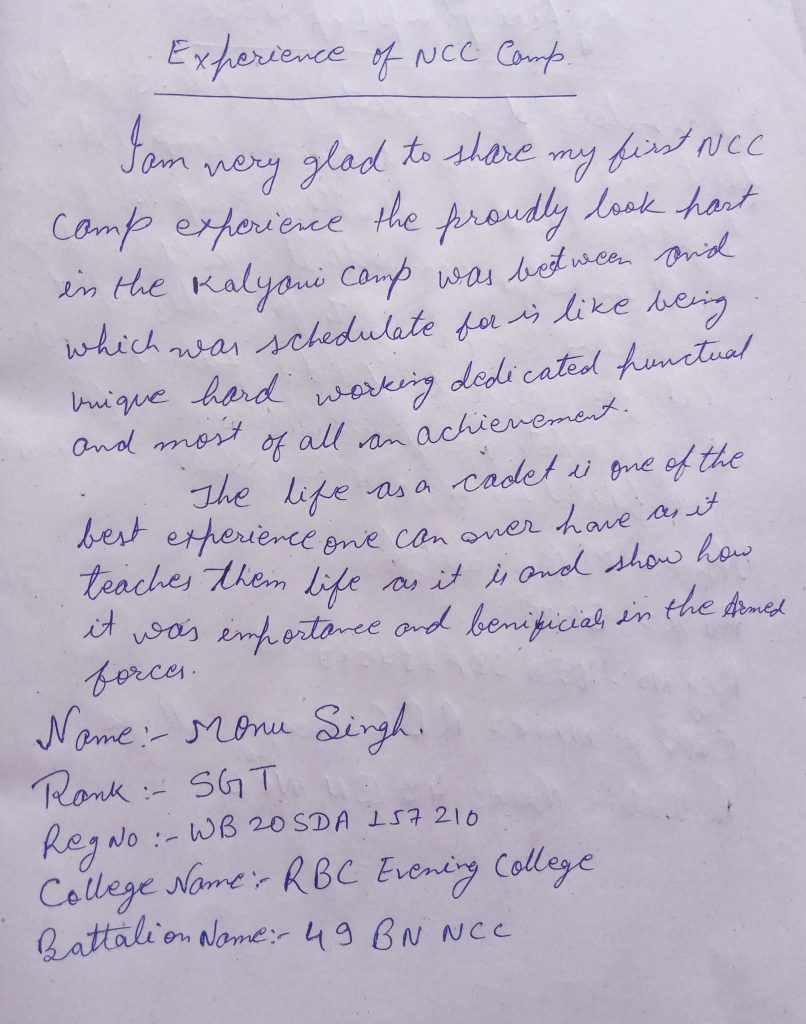 Experience of NCC Camp.
I am very glad to share my first NCC
Camp experience the proudly look part
in the Kalyani Camp was between and
which was schedulate for is like being
unique hard working dedicated punctual
and most of all an achievement.
The life as a cadet is one of the
best experience one can over have as it
teaches them life as it is and show how
it was importance and benificials in the Armed
forces.
Name:- Monu Singh.
Rank :- SGT
Reg No :- WB 20 SDA 157210
College Name:- RBC Evening College
Battalion Name:- 49 BN NCC